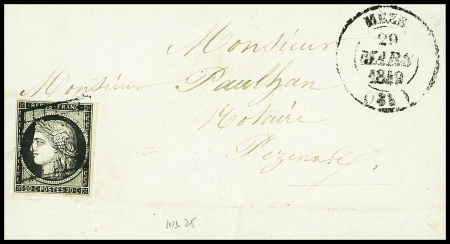 MEZE
29
MARS
1849
(32)
Monsieur
Monsieur Paulhan
Notaire
Pezenas
REPUB. FRANC.
20 C POSTES 20 C